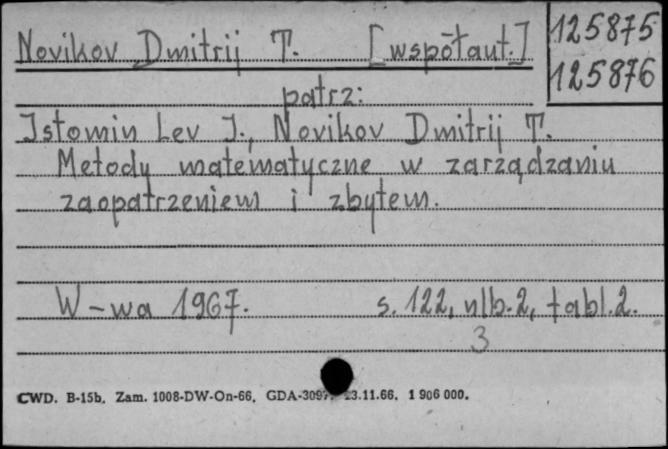 Novikov Dmitrij T. [współaut.]
125875
125876
patrz:
Istomin Lev I., Novikov Dmitrij T.
Metody matematyczne w zarządzaniu
zaopatrzeniem i zbytem.
W-wa 1967. s. 122, nlb. 2, tabl. 2.
3
CWD. B-15b. Zam. 1008-DW-On-66. 3.11.66. 1 906 000.